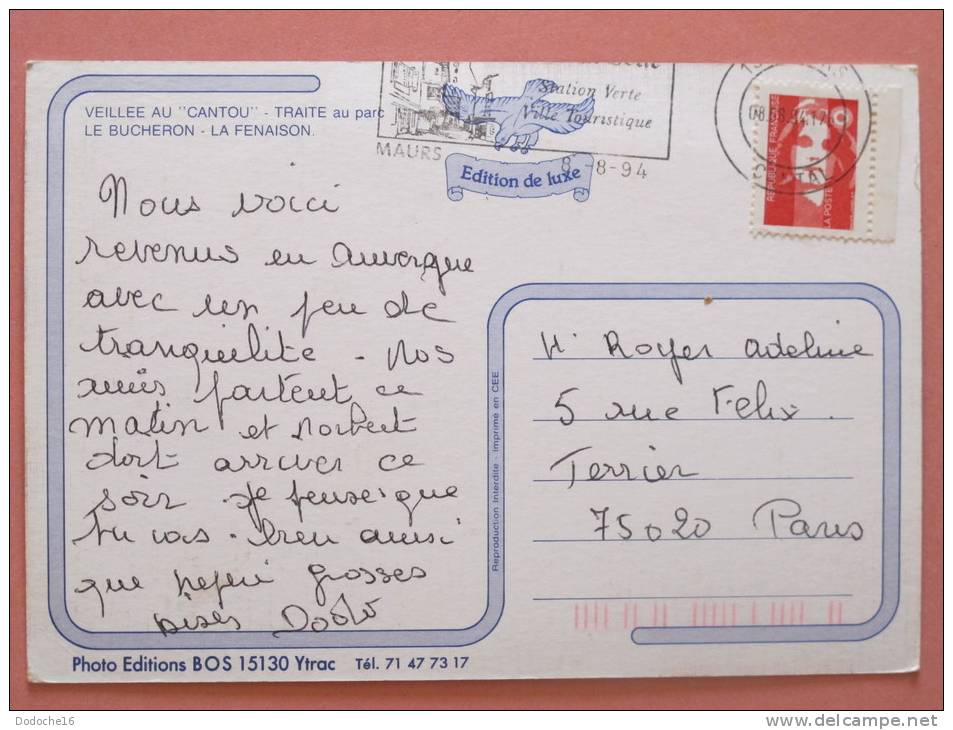 VEILLEE AU "CANTOU" - TRAITE au parc
LE BUCHERON - LA FENAISON.
Station Verte
Ville Touristique
MAURS
8 -8-94
Edition de luxe
08.08.94.17
REPUBLIQUE FRANÇAISE
LA POSTE
Nous voici
revenus en Auvergne
avec un peu de
tranquilite - Nos
amis partent ce
matin et Norbert
doit arriver ce
soir. Je pense que
tu vas bien ainsi
que
grosses
bises
Reproduction Interdite - Imprimé en CEE
Royer Adeline
5 rue Felix
Terrier
75020 Paris
Photo Editions BOS 15130 Ytrac Tél. 71 47 73 17
Dodoche16
www.delcampe.net